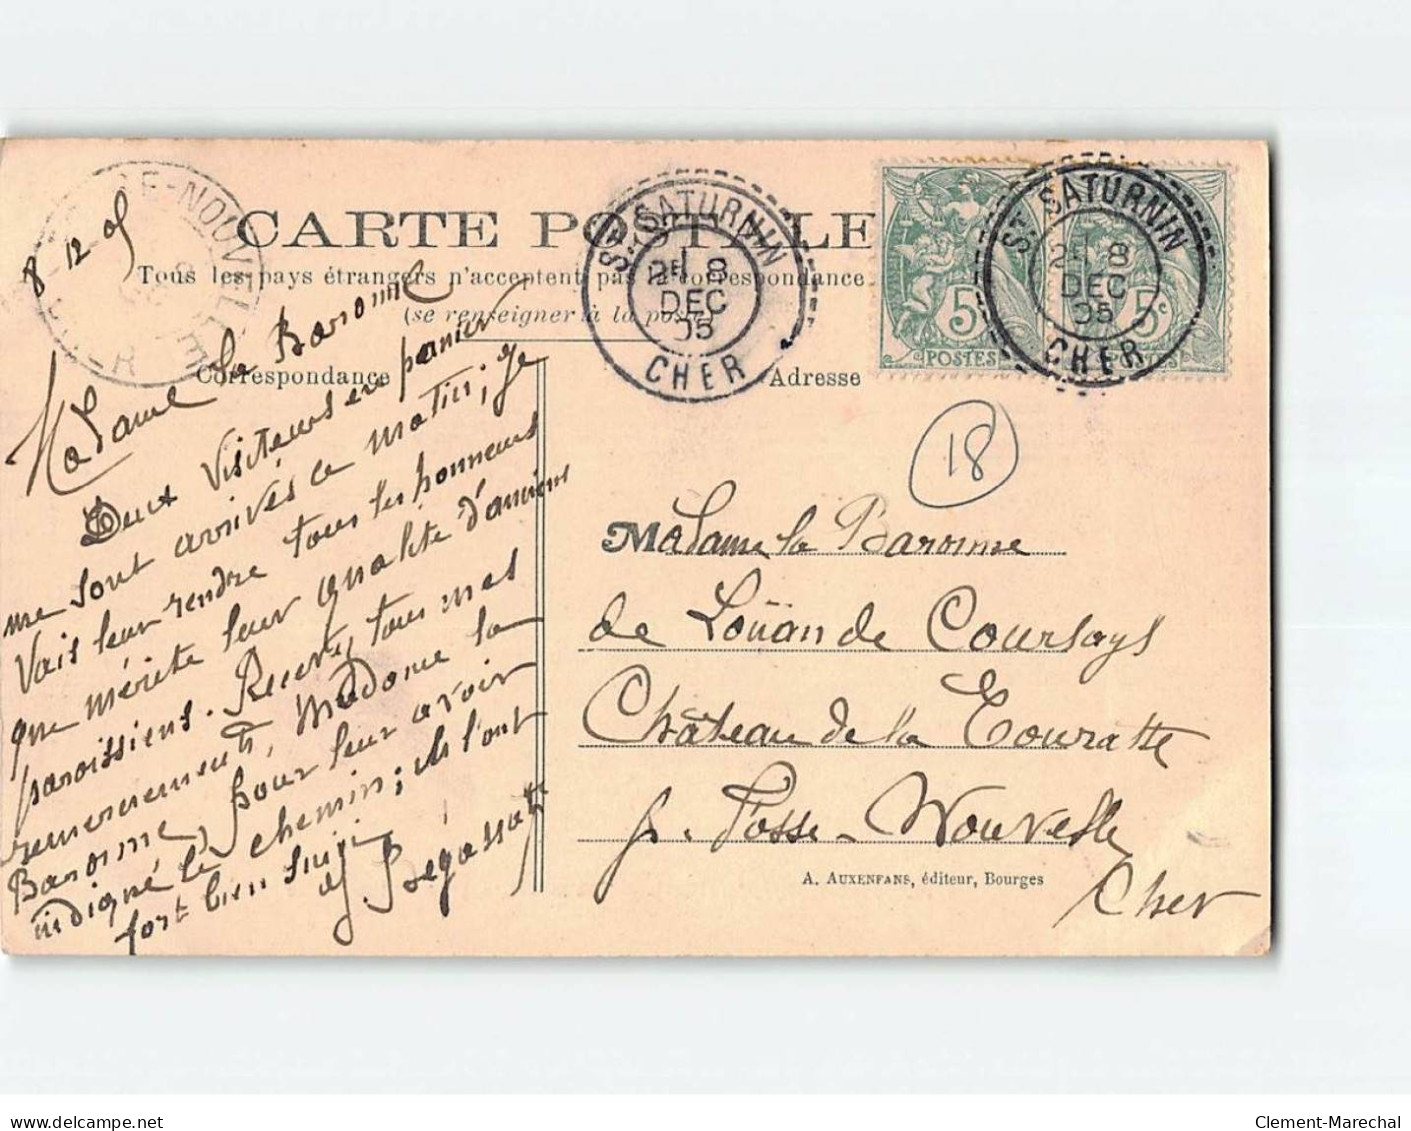 CARTE POSTALE
Tous les pays étrangers n'acceptent pas la correspondance
(se renseigner à la poste)
Correspondance
Adresse
8-12-05
Madame la Baronne
Deux Visiteurs en panier
me sont arrivés ce matin; je
Vais leur rendre tous les honneurs
que mérite leur qualité d'anciens
paroissiens. Recevez, tous mes
remerciements, Madame la
Baronne, pour leur avoir
indiqué le chemin; ils l'ont
fort bien suivi
ST SATURNIN
2E 8
DEC
05
CHER
ST SATURNIN
2E 8
DEC
05
CHER
5c
POSTES
5c
POSTES
18
Madame la Baronne
de Loüan de Coursays
Château de la Touratte
p. Fosse-Nouvelle
Cher
A. AUXENFANS, éditeur, Bourges
delcampe.net
Clement-Marechal